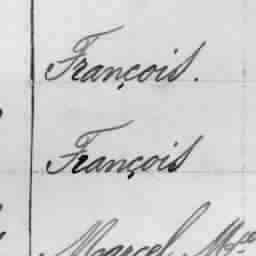 François.
François
Marcel M^ce